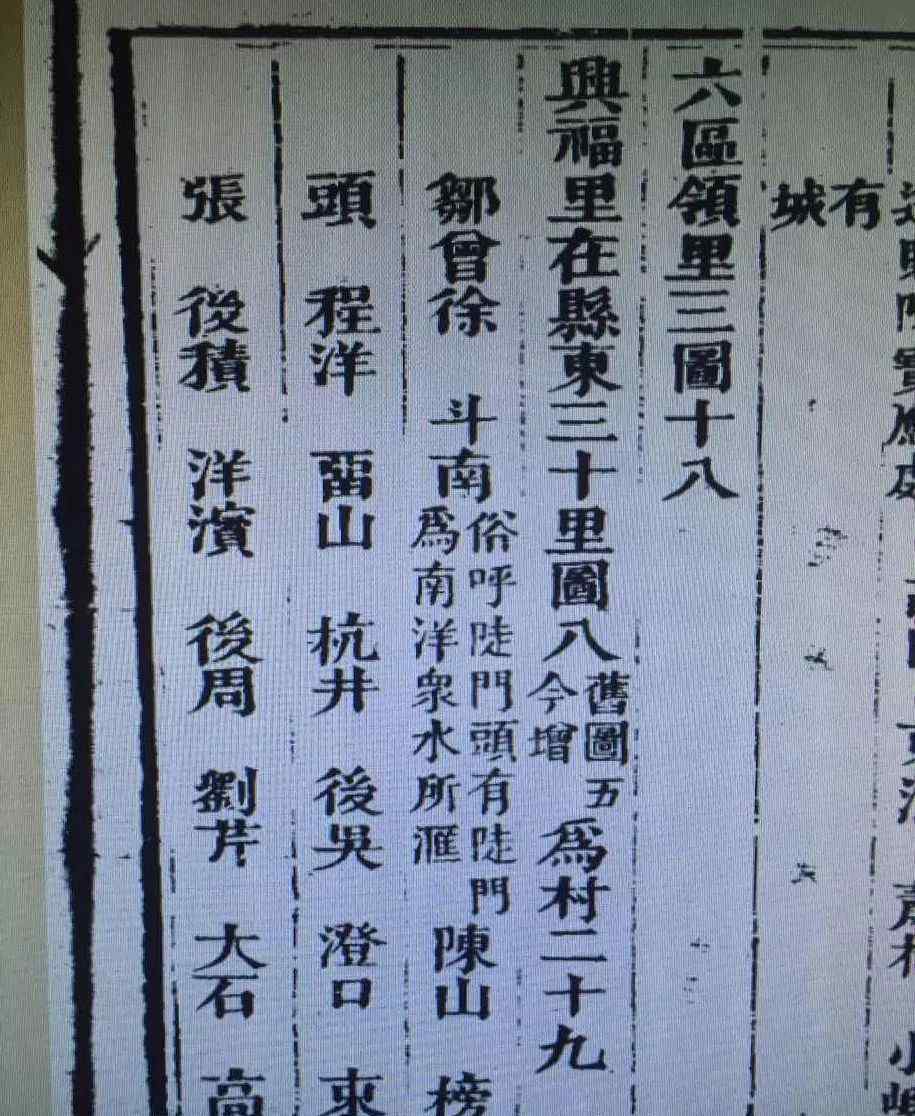 有
城
六區領里三圖十八
興福里在縣東三十里圖八舊圖五今增為村二十九
鄒曾徐 斗南俗呼陡門頭有陡門為南洋衆水所滙 陳山 榜
頭 程洋 畱山 杭井 後吳 澄口 東
張 後積 洋濱 後周 劉芹 大石 高